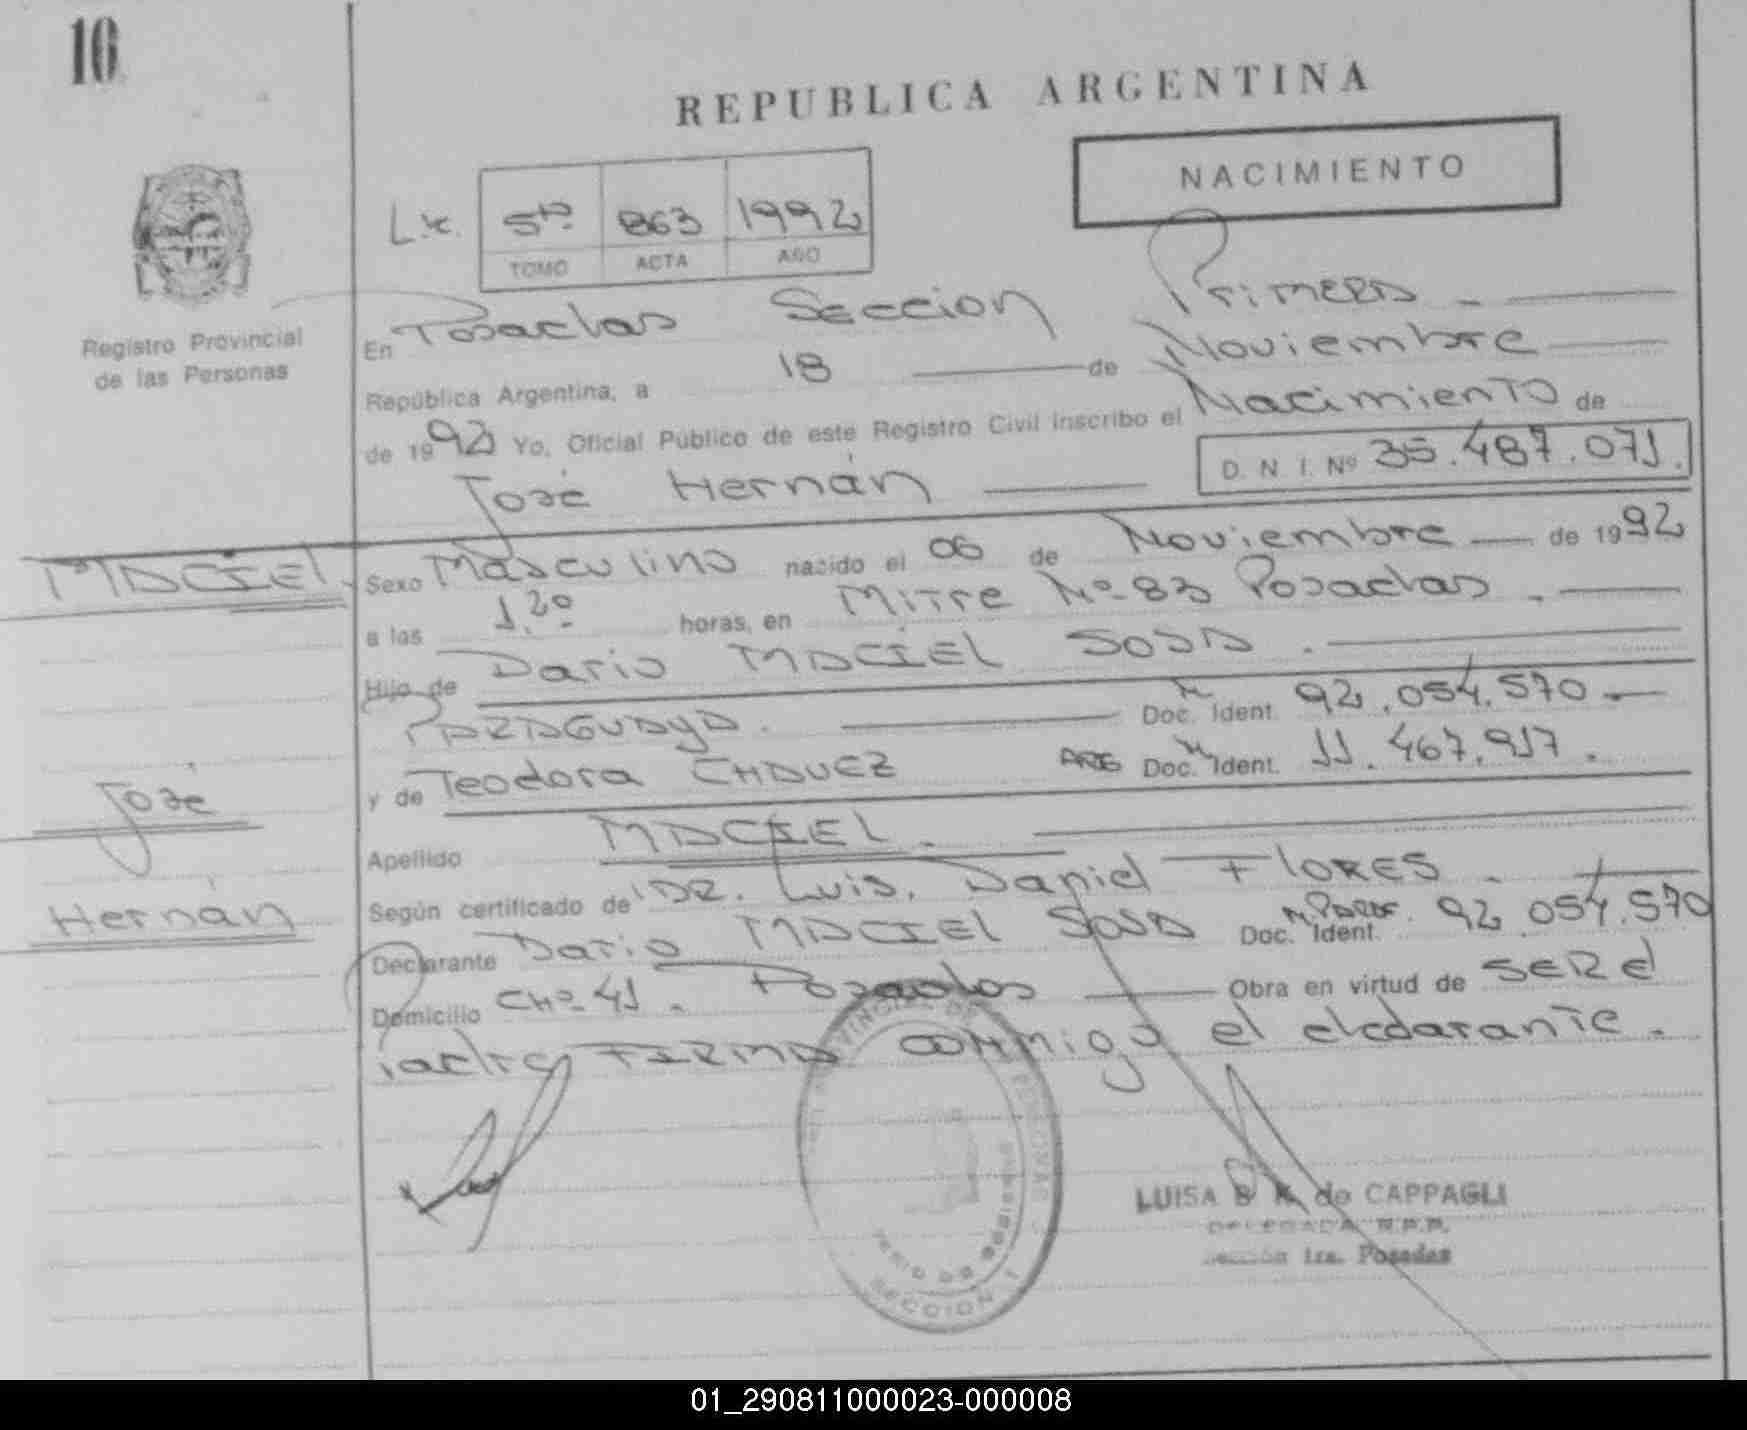 10
REPUBLICA ARGENTINA
NACIMIENTO
5to. 863 1992
TOMO ACTA AÑO
Registro Provincial
de las Personas
En Posadas Sección Primera
República Argentina, a 18 de Noviembre
de 1992 Yo, Oficial Público de este Registro Civil inscribo el Nacimiento de
José Hernán D. N. I. Nº 35.487.071.
MACIEL
Sexo Masculino nacido el 06 de Noviembre de 1992
a las horas, en Mitre Nº 83 Posadas.
Hijo de Dario MACIEL SOSA.
PARAGUAYA. Doc. Ident. 92.054.570
y de Teodora CHAVEZ ARG Doc. Ident. 11.467.917.
José
Hernán
Apellido MACIEL.
Según certificado de DR. Luis, Daniel FLORES.
Declarante Dario MACIEL SOSA Doc. Ident. 92.054.570
Domicilio CHº 41. Posadas Obra en virtud de SER el
FIRMA conmigo el declarante.
LUISA B K de CAPPAGLI
DELEGADA R.P.P.
Sección 1ra. Posadas
SECCION 1
01_290811000023-000008